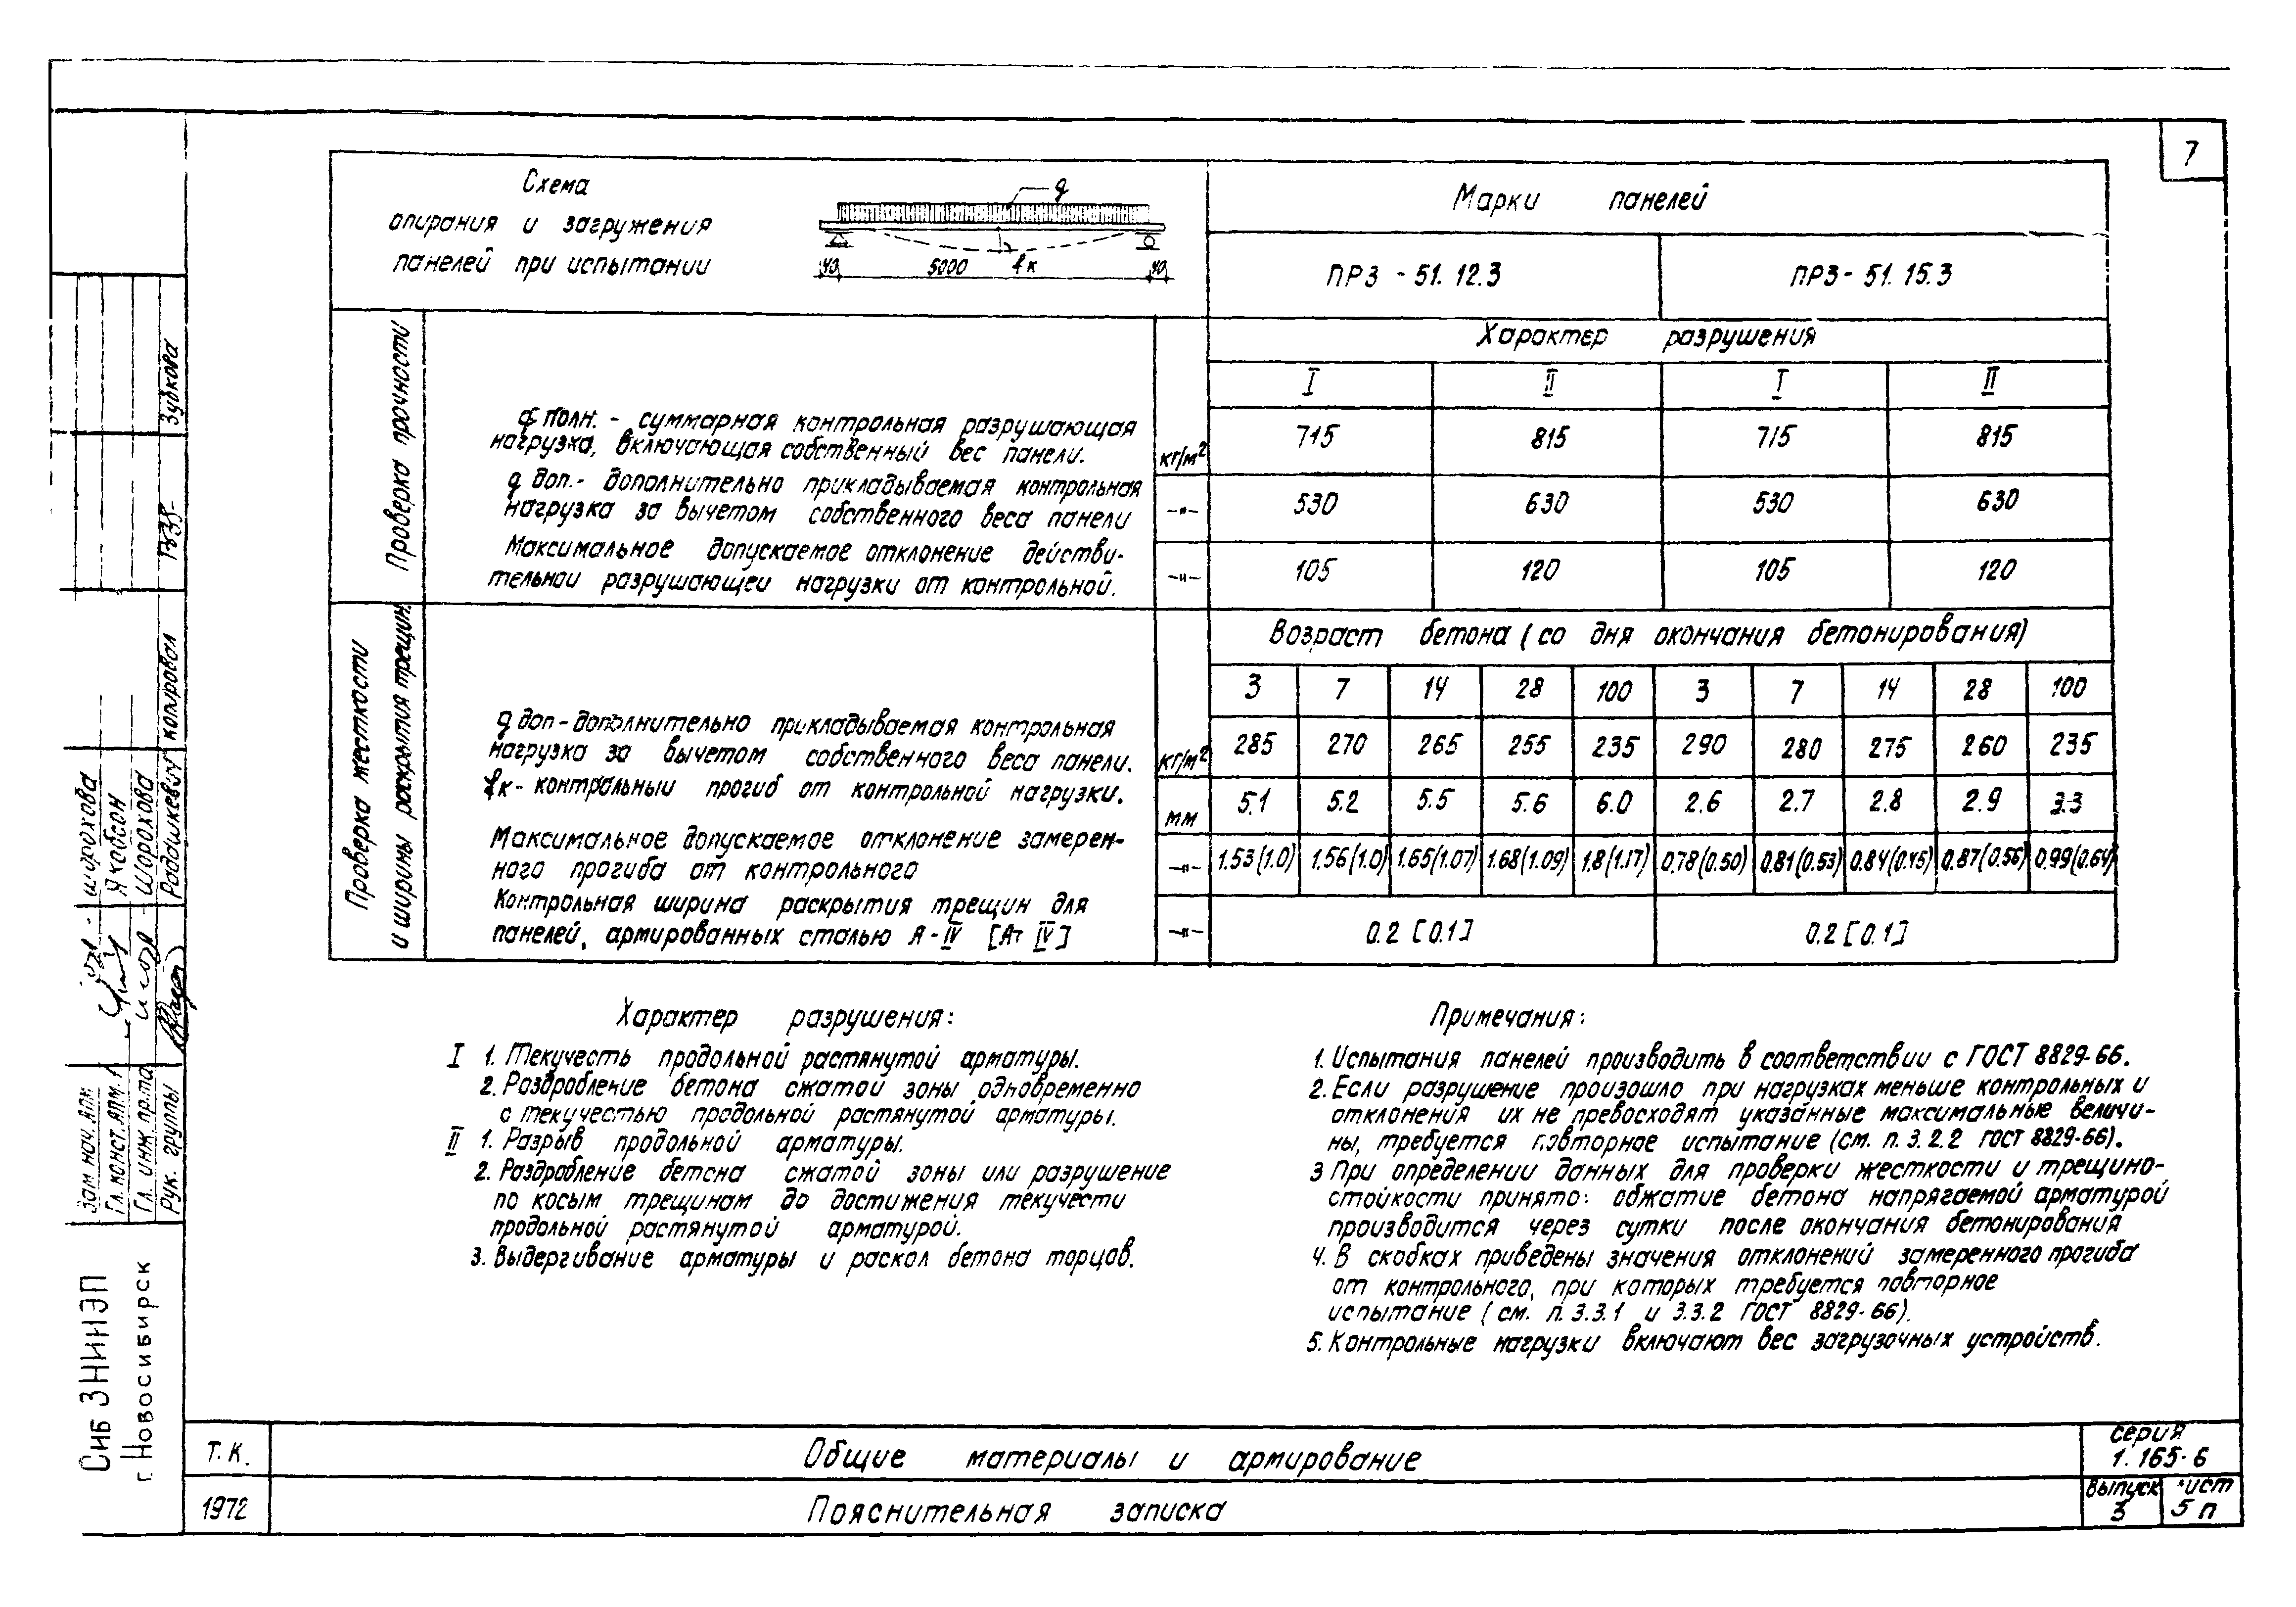 7
Схема
опирания и загружения
панелей при испытании
q
40 5000 fк 40
Марки панелей
ПРЗ - 51. 12.3 ПРЗ - 51. 15.3
Характер разрушения
I II I II
Проверка прочности
q полн. - суммарная контрольная разрушающая
нагрузка, включающая собственный вес панели.
кг/м² 715 815 715 815
q доп.- дополнительно прикладываемая контрольная
нагрузка за вычетом собственного веса панели
-"- 530 630 530 630
Максимальное допускаемое отклонение действи-
тельной разрушающей нагрузки от контрольной.
-"- 105 120 105 120
Проверка жесткости
и ширины раскрытия трещин.
Возраст бетона (со дня окончания бетонирования)
3 7 14 28 100 3 7 14 28 100
q доп - дополнительно прикладываемая контрольная
нагрузка за вычетом собственного веса панели.
кг/м² 285 270 265 255 235 290 280 275 260 235
fк - контрольный прогиб от контрольной нагрузки.
мм 5.1 5.2 5.5 5.6 6.0 2.6 2.7 2.8 2.9 3.3
Максимальное допускаемое отклонение замерен-
ного прогиба от контрольного
-"- 1.53(1.0) 1.56(1.0) 1.65(1.07) 1.68(1.09) 1.8(1.17) 0.78(0.50) 0.81(0.53) 0.84(0.45) 0.87(0.56) 0.99(0.64)
Контрольная ширина раскрытия трещин для
панелей, армированных сталью А-IV [Ат IV]
-"- 0.2 [0.1] 0.2 [0.1]
Характер разрушения:
I 1. Текучесть продольной растянутой арматуры.
2. Раздробление бетона сжатой зоны одновременно
с текучестью продольной растянутой арматуры.
II 1. Разрыв продольной арматуры.
2. Раздробление бетона сжатой зоны или разрушение
по косым трещинам до достижения текучести
продольной растянутой арматурой.
3. Выдергивание арматуры и раскол бетона торцов.
Примечания:
1. Испытания панелей производить в соответствии с ГОСТ 8829-66.
2. Если разрушение произошло при нагрузках меньше контрольных и
отклонения их не превосходят указанные максимальные величи-
ны, требуется повторное испытание (см. п. 3.2.2 ГОСТ 8829-66).
3 При определении данных для проверки жесткости и трещино-
стойкости принято: обжатие бетона напрягаемой арматурой
производится через сутки после окончания бетонирования
4. В скобках приведены значения отклонений замеренного прогиба
от контрольного, при которых требуется повторное
испытание (см. п. 3.3.1 и 3.3.2 ГОСТ 8829-66).
5. Контрольные нагрузки включают вес загрузочных устройств.
Т.К. Общие материалы и армирование
серия
1.165-6
1972 Пояснительная записка
Выпуск
3
лист
5 п
Зубкова
копировал
Шорохова
Якобсон
Шорохова
Радашкевич
Зам нач. АПМ
Гл. конст. АПМ-1
Гл. инж. пр-та
Рук. группы
Сиб ЗНИИЭП
г. Новосибирск